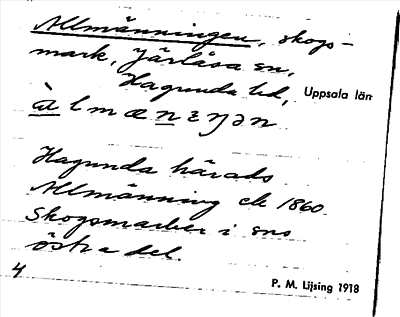 Allmänningen, skogs-
mark, Järlåsa sn,
Hagunda hd, Uppsala län
àlmæneŋən
Hagunda härads
Allmänning ek 1860.
Skogsmarken i sns
östra del.
4
P. M. Lijsing 1918